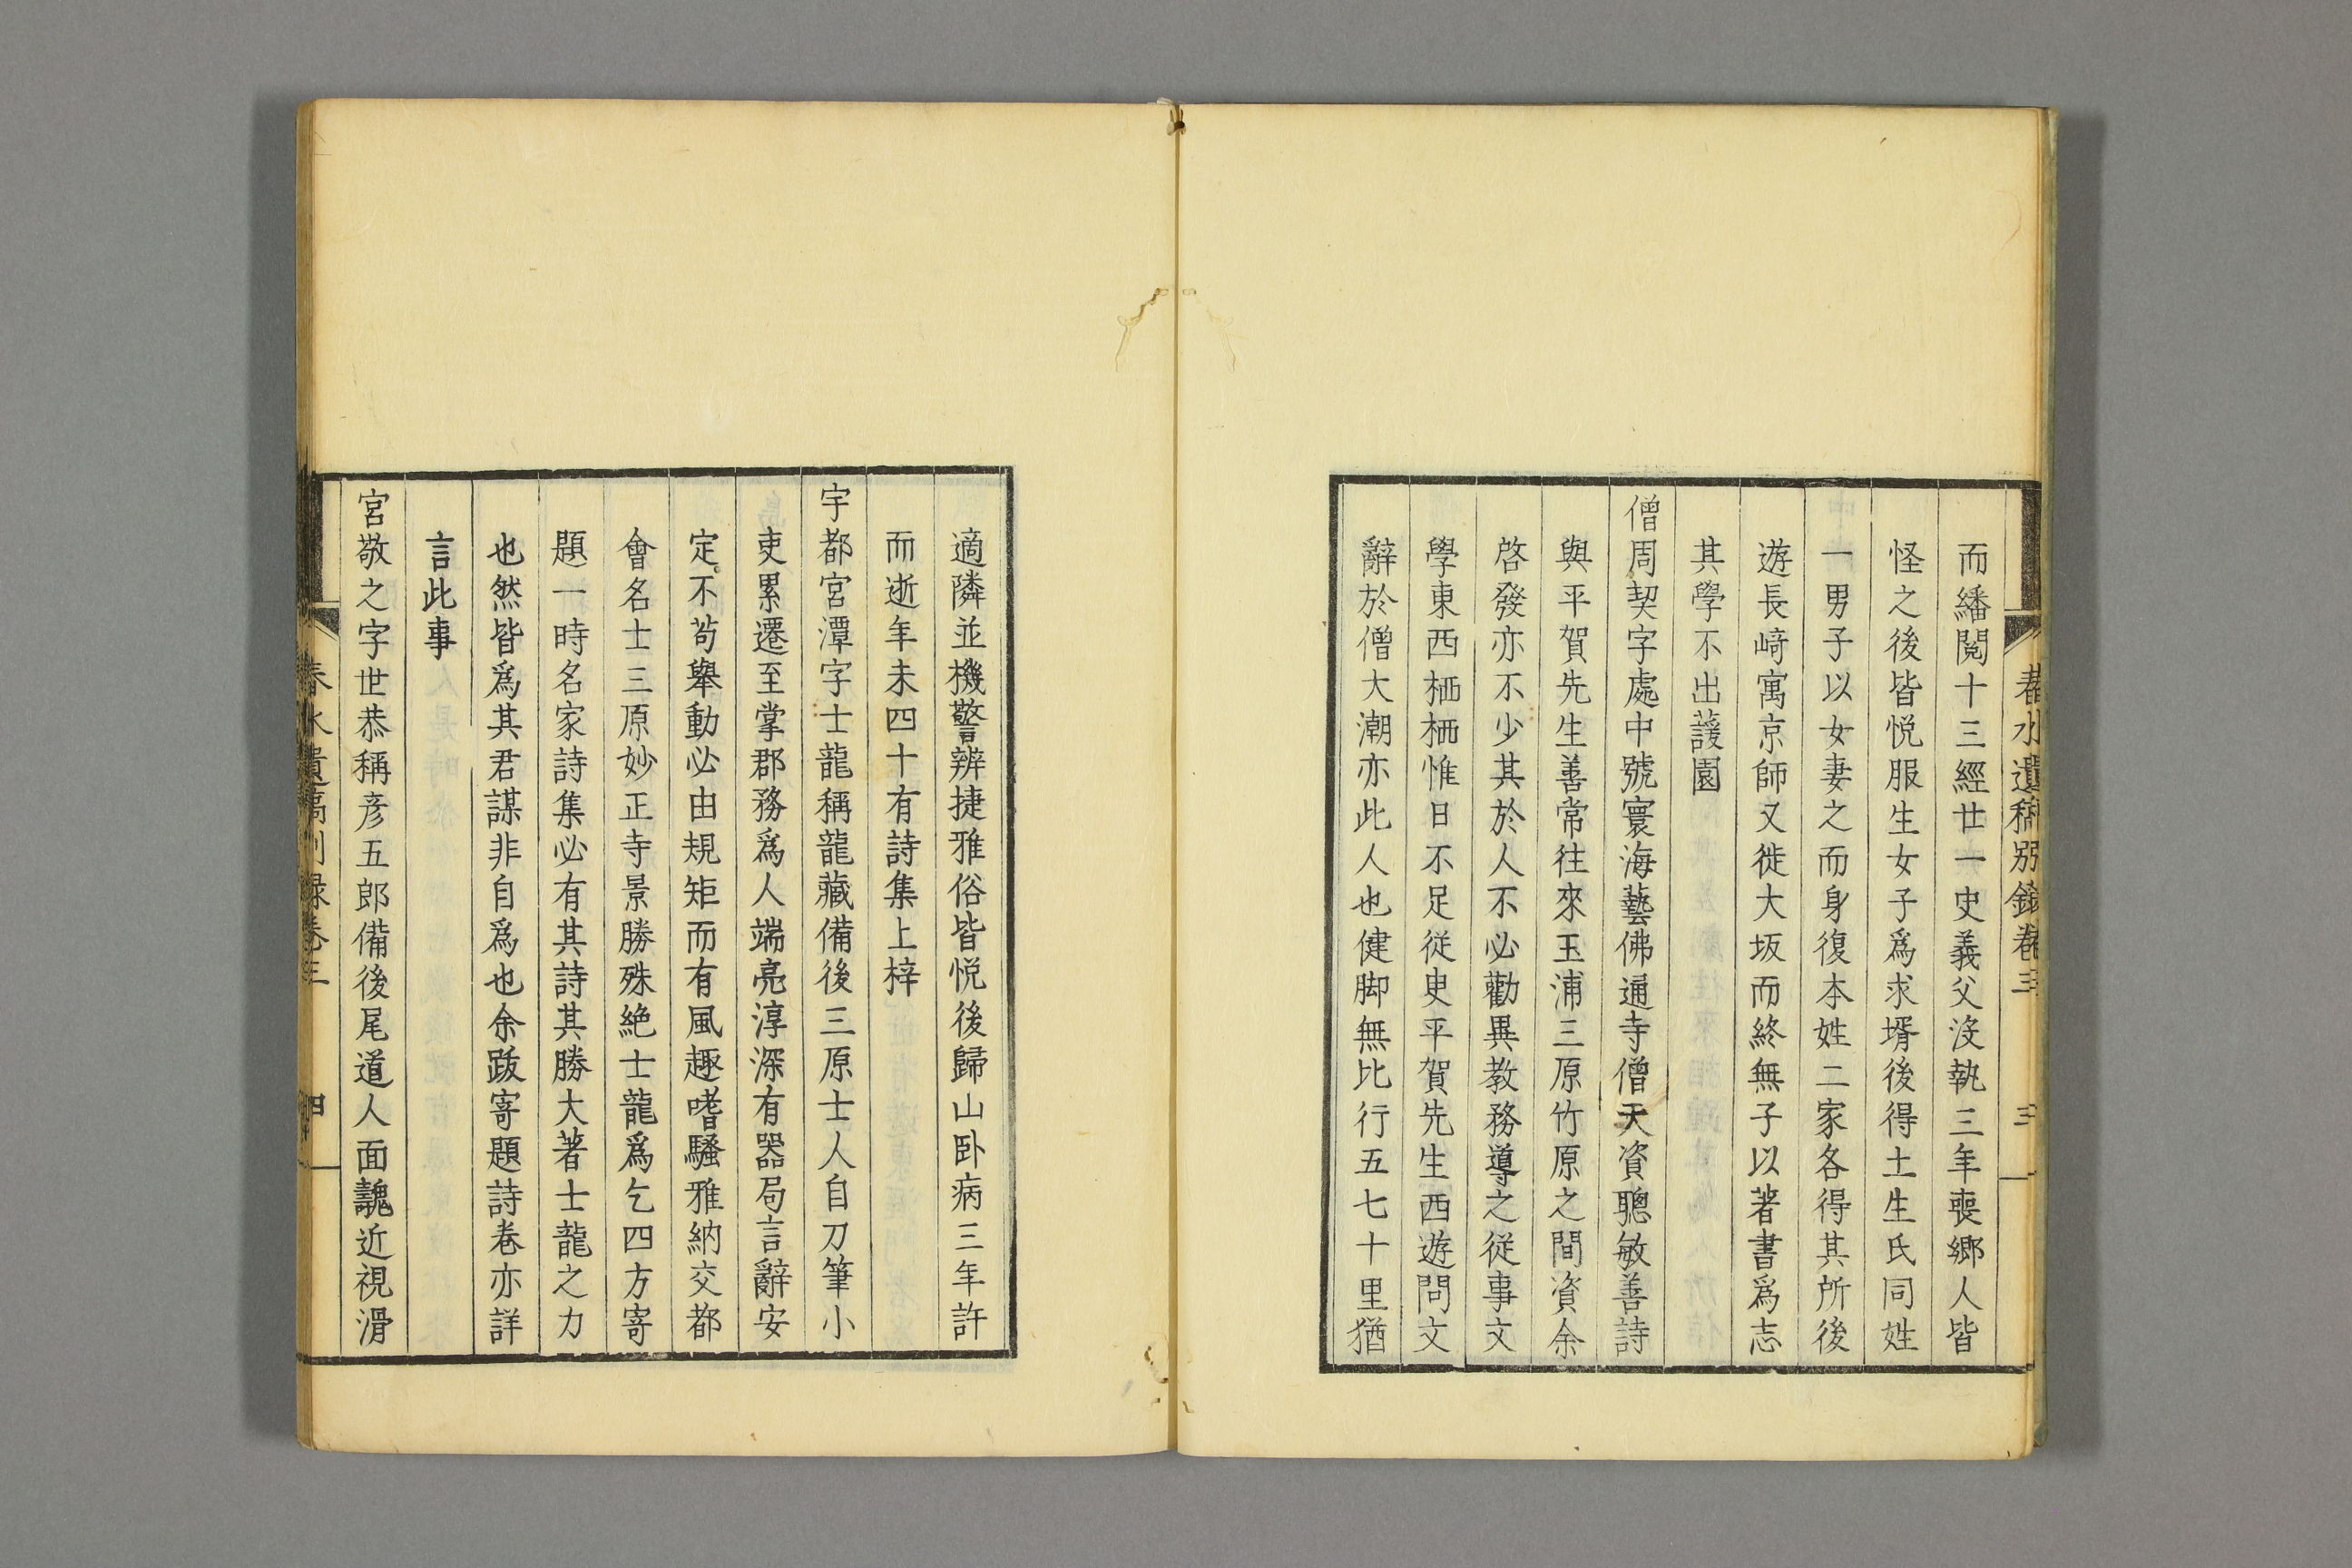 春水遺稿別録卷三
三
而繙閱十三經廿一史義父沒執三年喪鄉人皆
怪之後皆悦服生女子爲求壻後得土生氏同姓
一男子以女妻之而身復本姓二家各得其所後
遊長﨑寓京師又徙大坂而終無子以著書爲志
其學不出蘐園
僧周契字處中號寰海藝佛通寺僧天資聰敏善詩
與平賀先生善常往來玉浦三原竹原之間資余
啓發亦不少其於人不必勸異教務導之從事文
學東西栖栖惟日不足從叟平賀先生西遊問文
辭於僧大潮亦此人也健脚無比行五七十里猶
適隣並機警辨捷雅俗皆悦後歸山卧病三年許
而逝年未四十有詩集上梓
宇都宮潭字士龍稱龍藏備後三原士人自刀筆小
吏累遷至掌郡務爲人端亮淳深有器局言辭安
定不苟舉動必由規矩而有風趣嗜騷雅納交都
會名士三原妙正寺景勝殊絶士龍爲乞四方寄
題一時名家詩集必有其詩其勝大著士龍之力
也然皆爲其君謀非自爲也余跋寄題詩卷亦詳
言此事
宮敬之字世恭稱彦五郎備後尾道人面醜近視滑
春水遺稿別録卷三
四